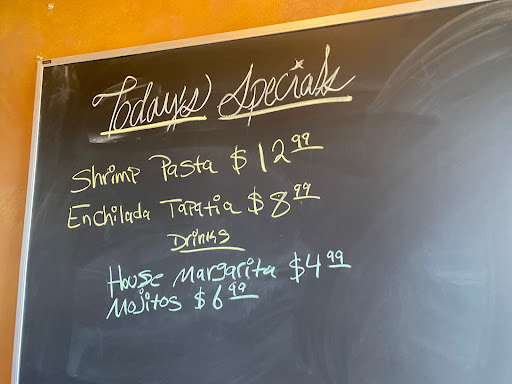 Today's Specials
Shrimp Pasta $12.99
Enchilada Tapatia $8.99
Drinks
House Margarita $4.99
Mojitos $6.99